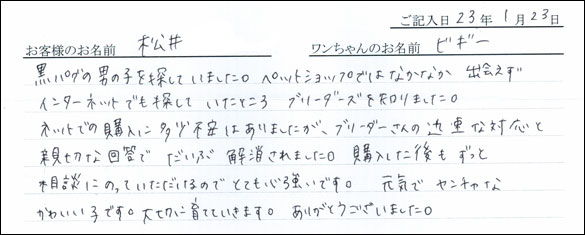 ご記入日 23年 1月 23日
お客様のお名前 松井 ワンちゃんのお名前 ビギー
黒パグの男の子を探していました。ペットショップではなかなか 出会えず
インターネットでも探して いたところ ブリーダーズを知りました。
ネットでの購入に多少不安はありましたが、ブリーダーさんの迅速な対応と
親切な回答で だいぶ 解消されました。購入した後も ずっと
相談にのっていただけるので とても心強いです。 元気で ヤンチャな
かわいい子です。大切に育てていきます。 ありがとうございました。